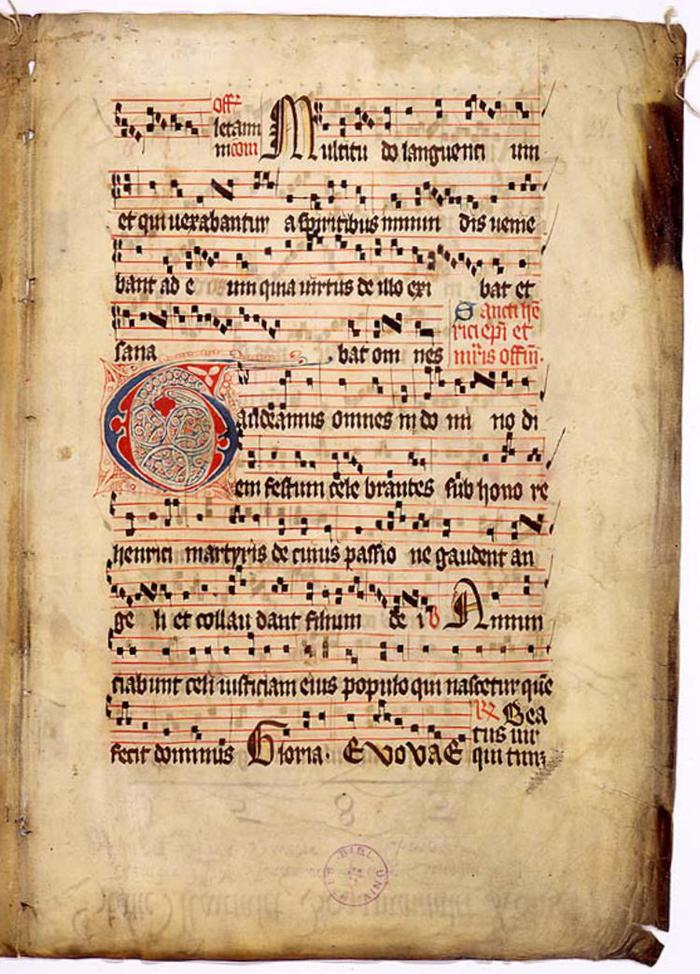 offr
letam
mcom Multitu do languenti um
et qui uexabantur a spiritibus inmun dis uenie
bant ad e um quia uirtus de illo exi bat et
sana bat om nes
Sancti hē
rici epi et
mris offm.
Gaudeamus omnes in do mi no di
em festum cele brantes sub hono re
henrici martyris de cuius passio ne gaudent an
ge li et collau dant filium de i V Annun
ciabunt celi iusticiam eius populo qui nascetur quē
fecit dominus Gloria. EvovaE
R Bea
tus uir
qui tim
BIBL UNIV